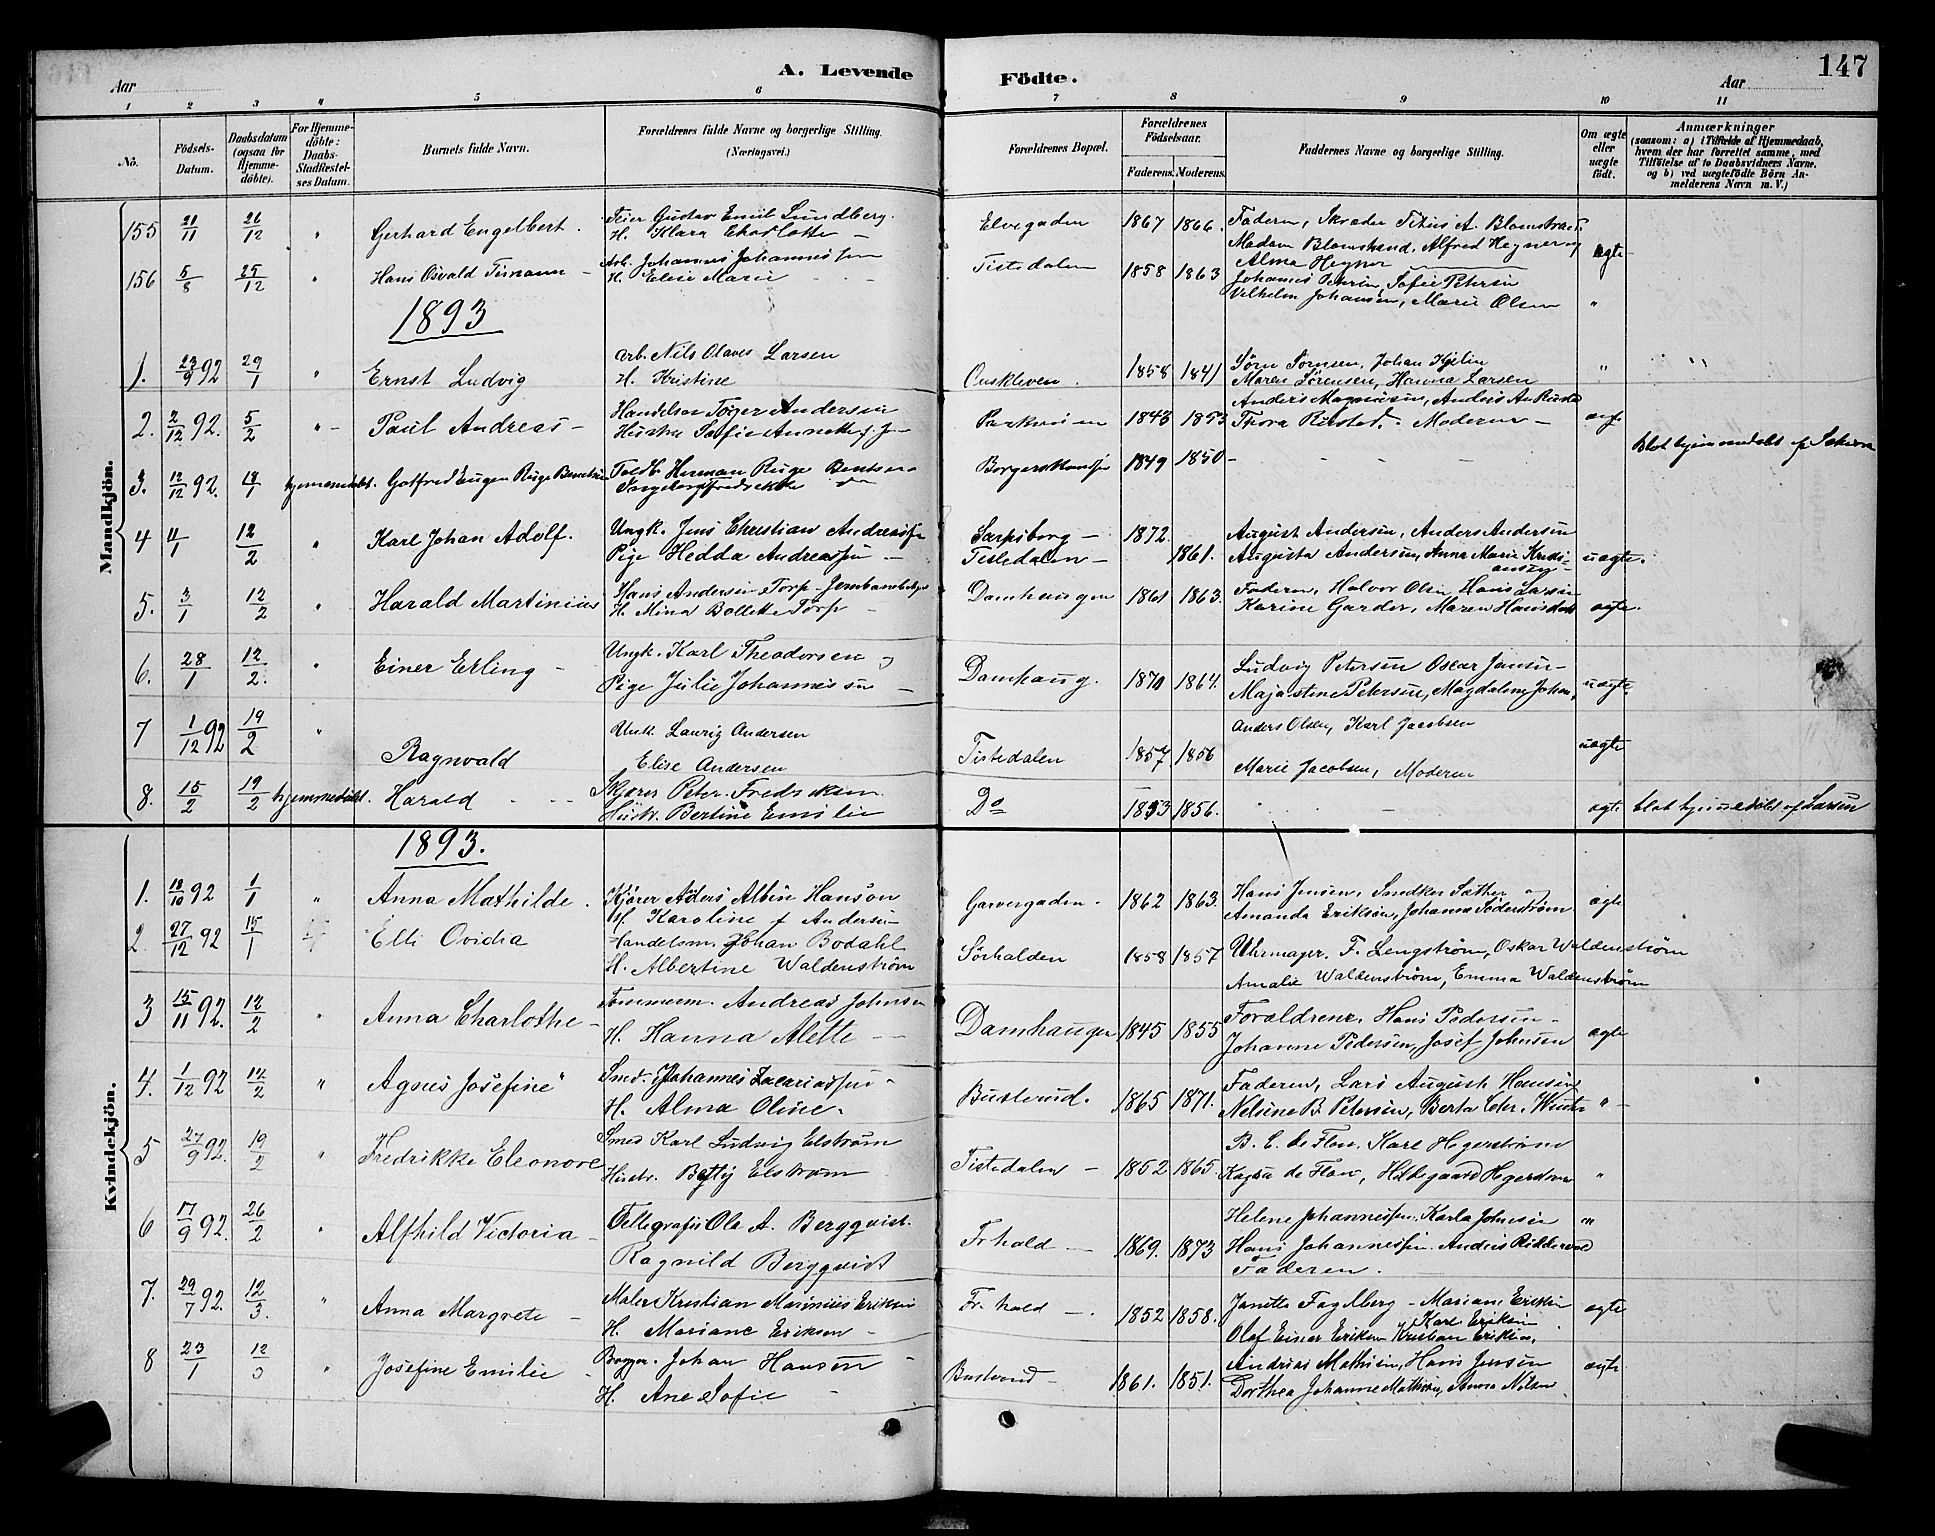 147
A. Levende Födte.
Aar
Aar
1 2 3 4 5 6 7 8 9 10 11
No.
Födsels-Datum.
Daabsdatum (ogsaa for Hjemme-döbte).
For Hjemme-döbte: Daabs-Stadfæstel-ses Datum.
Barnets fulde Navn.
Forældrenes fulde Navne og borgerlige Stilling. (Næringsvei.)
Forældrenes Bopæl.
Forældrenes Födselsaar.
Faderens. Moderens.
Faddernes Navne og borgerlige Stilling.
Om ægte eller uægte födt.
Anmærkninger
(saasom: a) i Tilfælde af Hjemmedaab, hvem der har forrettet samme, med Tilföielse af to Daabsvidners Navne, og b) ved uægtefödte Börn An-melderens Navn m. V.)
Mandkjön.
155 21/11 26/12 " Gerhard Engelbert. Feier Gustav Emil Lundberg. Elvegaden 1867 1866. Faderen, Skræder Titus A. Blomstrand
H. Klara Charlotte — Madam Blomstrand, Alfred Hegner og ægte
Alma Hegner
156 5/8 25/12 " Hans Osvald Timann — Arb. Johannes Johannessen Tistedalen 1858 1863 Johannes Petersen, Sofie Petersen
H. Elise Marie Vilhelm Johansen, Marie Olsen "
1893
1. 23/9 92 29/1 " Ernst Ludvig Arb. Nils Olaves Larsen 1858 1841 Sørn Sørnsen, Johan Kjelin "
H. Kristine Maren Sørensen, Hanna Larsen
2. 2/12 92. 5/2 " Paul Andreas — Handelsm Tøger Andersen 1843 1853 Anders Magnusen,
Hustru Sofie Annette Thora Rustad. Moderen —
3. 12/12 92. 18/1 hjemmedøbt. Gotfred Eugen Ruge Berntsen Toldb. Herman Ruge Berntsen 1849 1850 — Blot hjemmedøbt af
Ingeborg Fredrekke
4 4/1 12/2 " Karl Johan Adolf. Ungk. Jens Christian Andreassen Sarpsborg — 1872 August Andersen, Anders Andersen
Pige Hedda Andreassen — Tistedalen — 1861. Augusta Andersen, Anna Marie Kristi- uægte.
ansen
5. 3/1 12/2 " Harald Martinius Hans Andersen Torp Damhaugen 1861 1863. Faderen, Halvor Olsen Hans Larsen
H. Mina Bollette Torp — Karine Garder, Maren Hansdatt ægte.
6. 28/1 12/2. " Einer Erling — Ungk. Karl Theodorsen og Damhaug. 1870 1864. Ludvig Petersen Oscar Jansen —
Pige Julie Johannessen — Majastine Petersen, Magdalene Johan, uægte
7 1/12 92 19/2 " Ragnvald Unk. Lauriz Andersen Tistedalen 1857 1856 Anders Olsen, Karl Jacobsen uægte
Elise Andersen Marie Jacobsen, Moderen
8. 15/2 19/2 hjemmedøbt. Harald Skjører Peter Fredriksen Do 1853 1856. ægte blot hjemmedøbt af Larsen
Hustr. Bertine Emilie
Kvindekjön.
1893.
1. 18/10 92 1/1 " Anna Mathilde. Kjører Anders Albin Hanson Garvergaden. 1862 1863. Hans Jensen, Snedker Sæther og ægte
H. Karoline f Andersen Amanda Erikson, Johanna Söderstrøm
2. 27/12 92 15/1 Elli Ovidia Handelsm. Johan Bodahl Sørhalden 1858 1857 Uhrmager. F. Lengstrøm, Oskar Waldenstrøm
H. Albertine Waldenstrøm Amalie Waldenstrøm, Emma Waldenstrøm
3 15/11 92. 12/2 " Anna Charlothe — Tømmerm. Andreas Johnsen Damhaugen 1845 1855 Forældrene, Hans Pedersen —
H. Hanna Alette — Johanne Pedersen, Josef Johnsen ægte
4. 1/12 92 12/2 " Agnes Josefine" Smed. Johannes Zacariassen Busterud. 1865 1871. Faderen, Lars August Hansen
H. Alma Oline. Nelsine B. Petersen, Berta Chr. Winter "
5 27/9 92. 19/2 " Fredrikke Eleonore Smed Karl Ludvig Elstrøm Tistedalen — 1852 1865. B. C. de Flon, Karl Hegerstrøm
Hustr. Betty Elstrøm Kajsa de Flon, Hildegaard Hegerstrøm "
6 17/9 92. 26/2 " Alfhild Victoria — Tellegrafis Ole A. Bergqvist. Frhald — 1869. 1873 Helene Johannessen, Karla Johnsen "
Ragnild Bergqvist Hans Johannessen. Andreas Riddervold
Faderen.
7. 29/7 92. 12/3. " Anna Margrete — Maler Kristian Marinius Eriksen Fr. hald —. 1852 1858. Janetta Fagelberg — Mariane Eriksen ægte
H. Mariane Eriksen — Karl Eriksen
Olaf Einer Eriksen Kristian Eriksen,
8 23/1 12/3 " Josefine Emilie Bygger. Johan Hansen — Busterud — 1861. 1851. Andreas Mathisen, Hans Jensen ægte
H. Ane Sofie — Dorthea Johanne Mathisen, Anna Nilsen